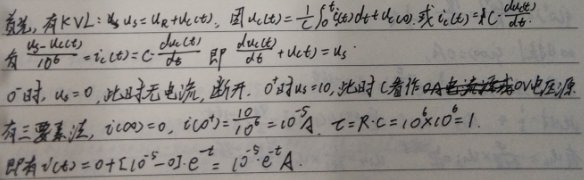 首先，有KVL: u_s = u_R + u_c(t). 因 u_c(t) = 1/C ∫₀ᵗ i(t)dt + u_c(0). 或 i_c(t) = C·du_c(t)/dt.
有 (u_s - u_c(t))/10⁶ = i_c(t) = C·du_c(t)/dt 即 du_c(t)/dt + u_c(t) = u_s.
0⁻时, u_s = 0, 此时无电流, 断开. 0⁺时 u_s = 10, 此时 C看作 0V电压源
有三要素法, i(∞) = 0, i(0⁺) = 10/10⁶ = 10⁻⁵A. τ = R·C = 10⁶×10⁻⁶ = 1.
即有 i(t) = 0 + [10⁻⁵ - 0]·e⁻ᵗ = 10⁻⁵·e⁻ᵗ A.